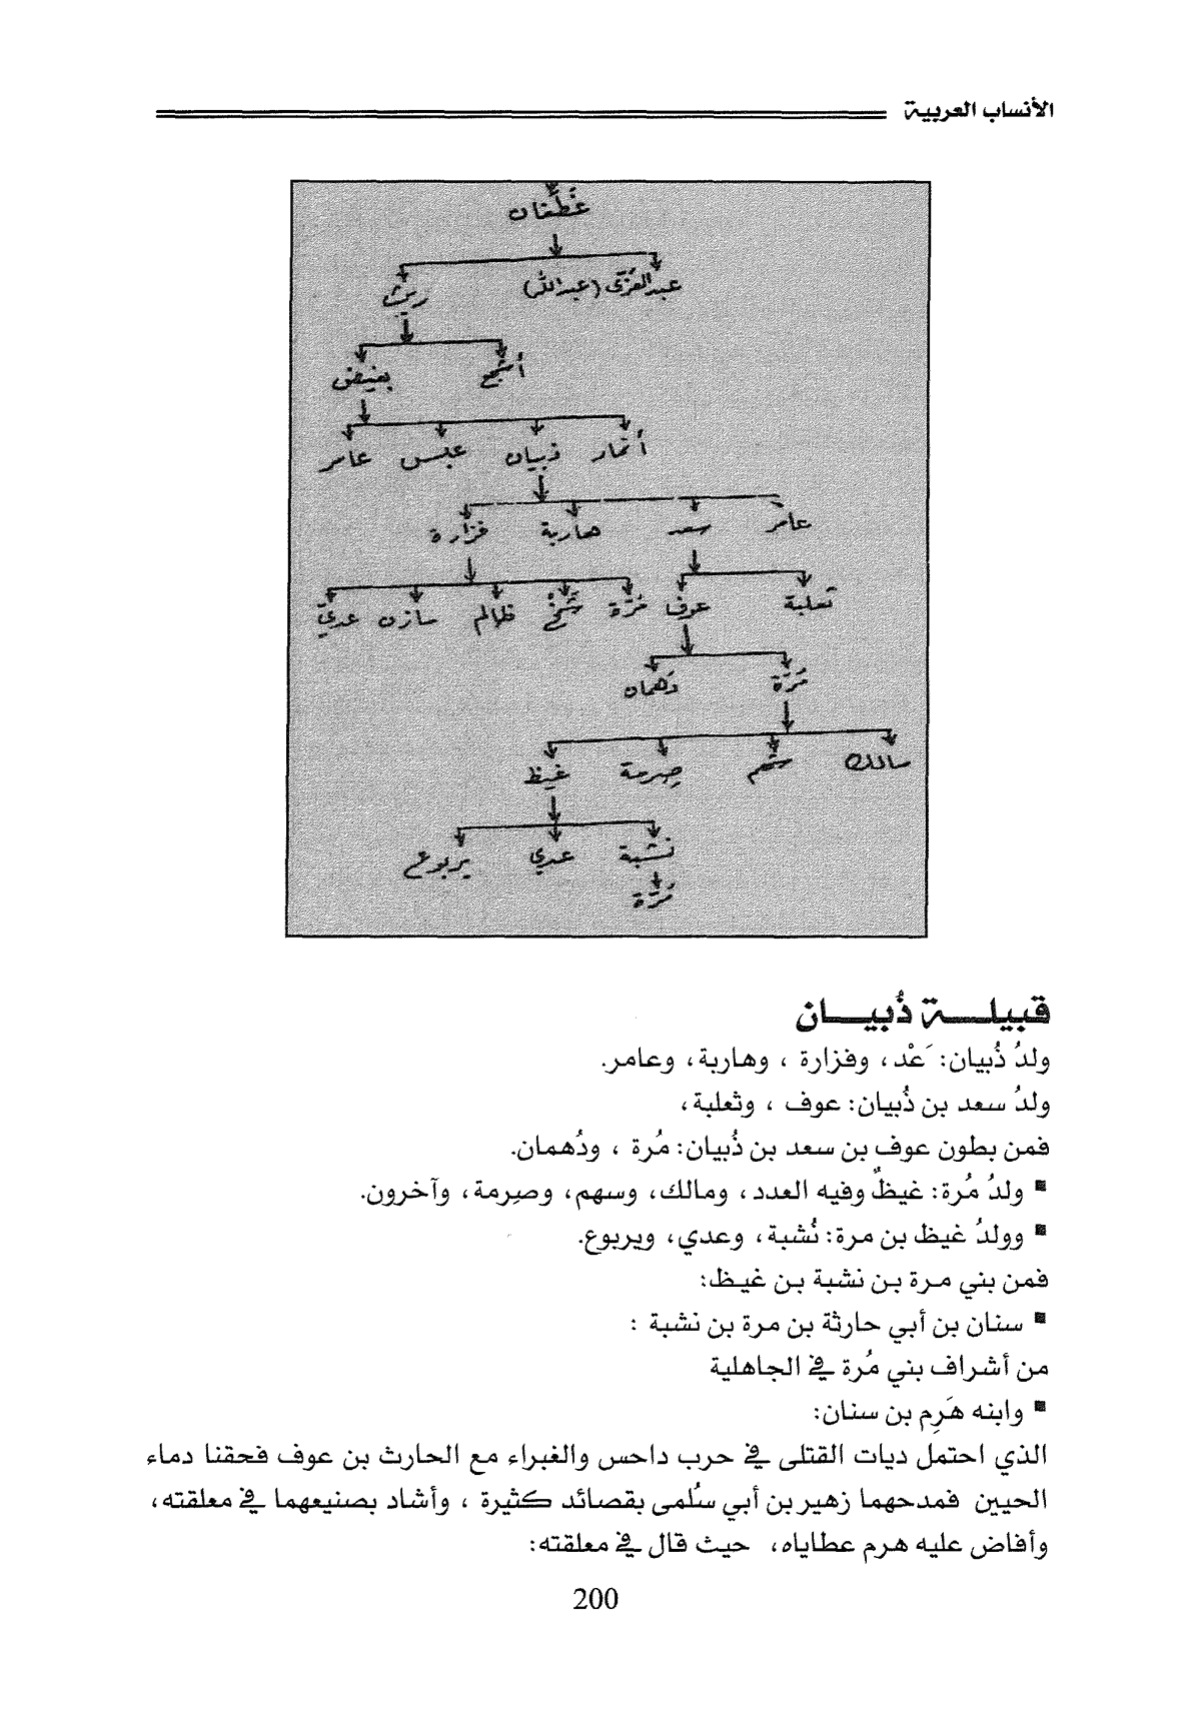 الأنساب العربية
غَطَفان
عبدالعُزّى (عبدالله) ريث
أشجع بغيض
أنمار ذبيان عبس عامر
عامر سعد هاربة فزارة
ثعلبة عوف مُرّة شَمْخ ظالم مازن عديّ
مُرّة دَهمان
مالك سَهم صِرمة غيظ
نشبة عدي يربوع
مُرّة
قبيلــة ذُبيــان
ولدُ ذُبيان: َعْد، وفزارة ، وهاربة، وعامر.
ولدُ سعد بن ذُبيان: عوف ، وثعلبة،
فمن بطون عوف بن سعد بن ذُبيان: مُرة ، ودُهمان.
▪ ولدُ مُرة: غيظٌ وفيه العدد، ومالك، وسهم، وصِرمة، وآخرون.
▪ وولدُ غيظ بن مرة: نُشبة، وعدي، ويربوع.
فمن بني مرة بن نشبة بن غيظ:
▪ سنان بن أبي حارثة بن مرة بن نشبة :
من أشراف بني مُرة في الجاهلية
▪ وابنه هَرِم بن سنان:
الذي احتمل ديات القتلى في حرب داحس والغبراء مع الحارث بن عوف فحقنا دماء
الحيين فمدحهما زهير بن أبي سلُمى بقصائد كثيرة ، وأشاد بصنيعهما في معلقته،
وأفاض عليه هرم عطاياه، حيث قال في معلقته:
200